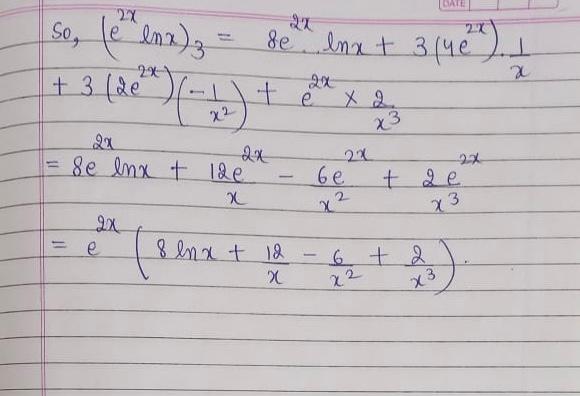 DATE
So, (e^{2x} lnx)_3 = 8e^{2x}. lnx + 3(4e^{2x}).\frac{1}{x}
+ 3 (2e^{2x}) (-\frac{1}{x^2}) + e^{2x} × \frac{2}{x^3}
= 8e^{2x} lnx + \frac{12e^{2x}}{x} - \frac{6e^{2x}}{x^2} + \frac{2e^{2x}}{x^3}
= e^{2x} (8 lnx + \frac{12}{x} - \frac{6}{x^2} + \frac{2}{x^3}).